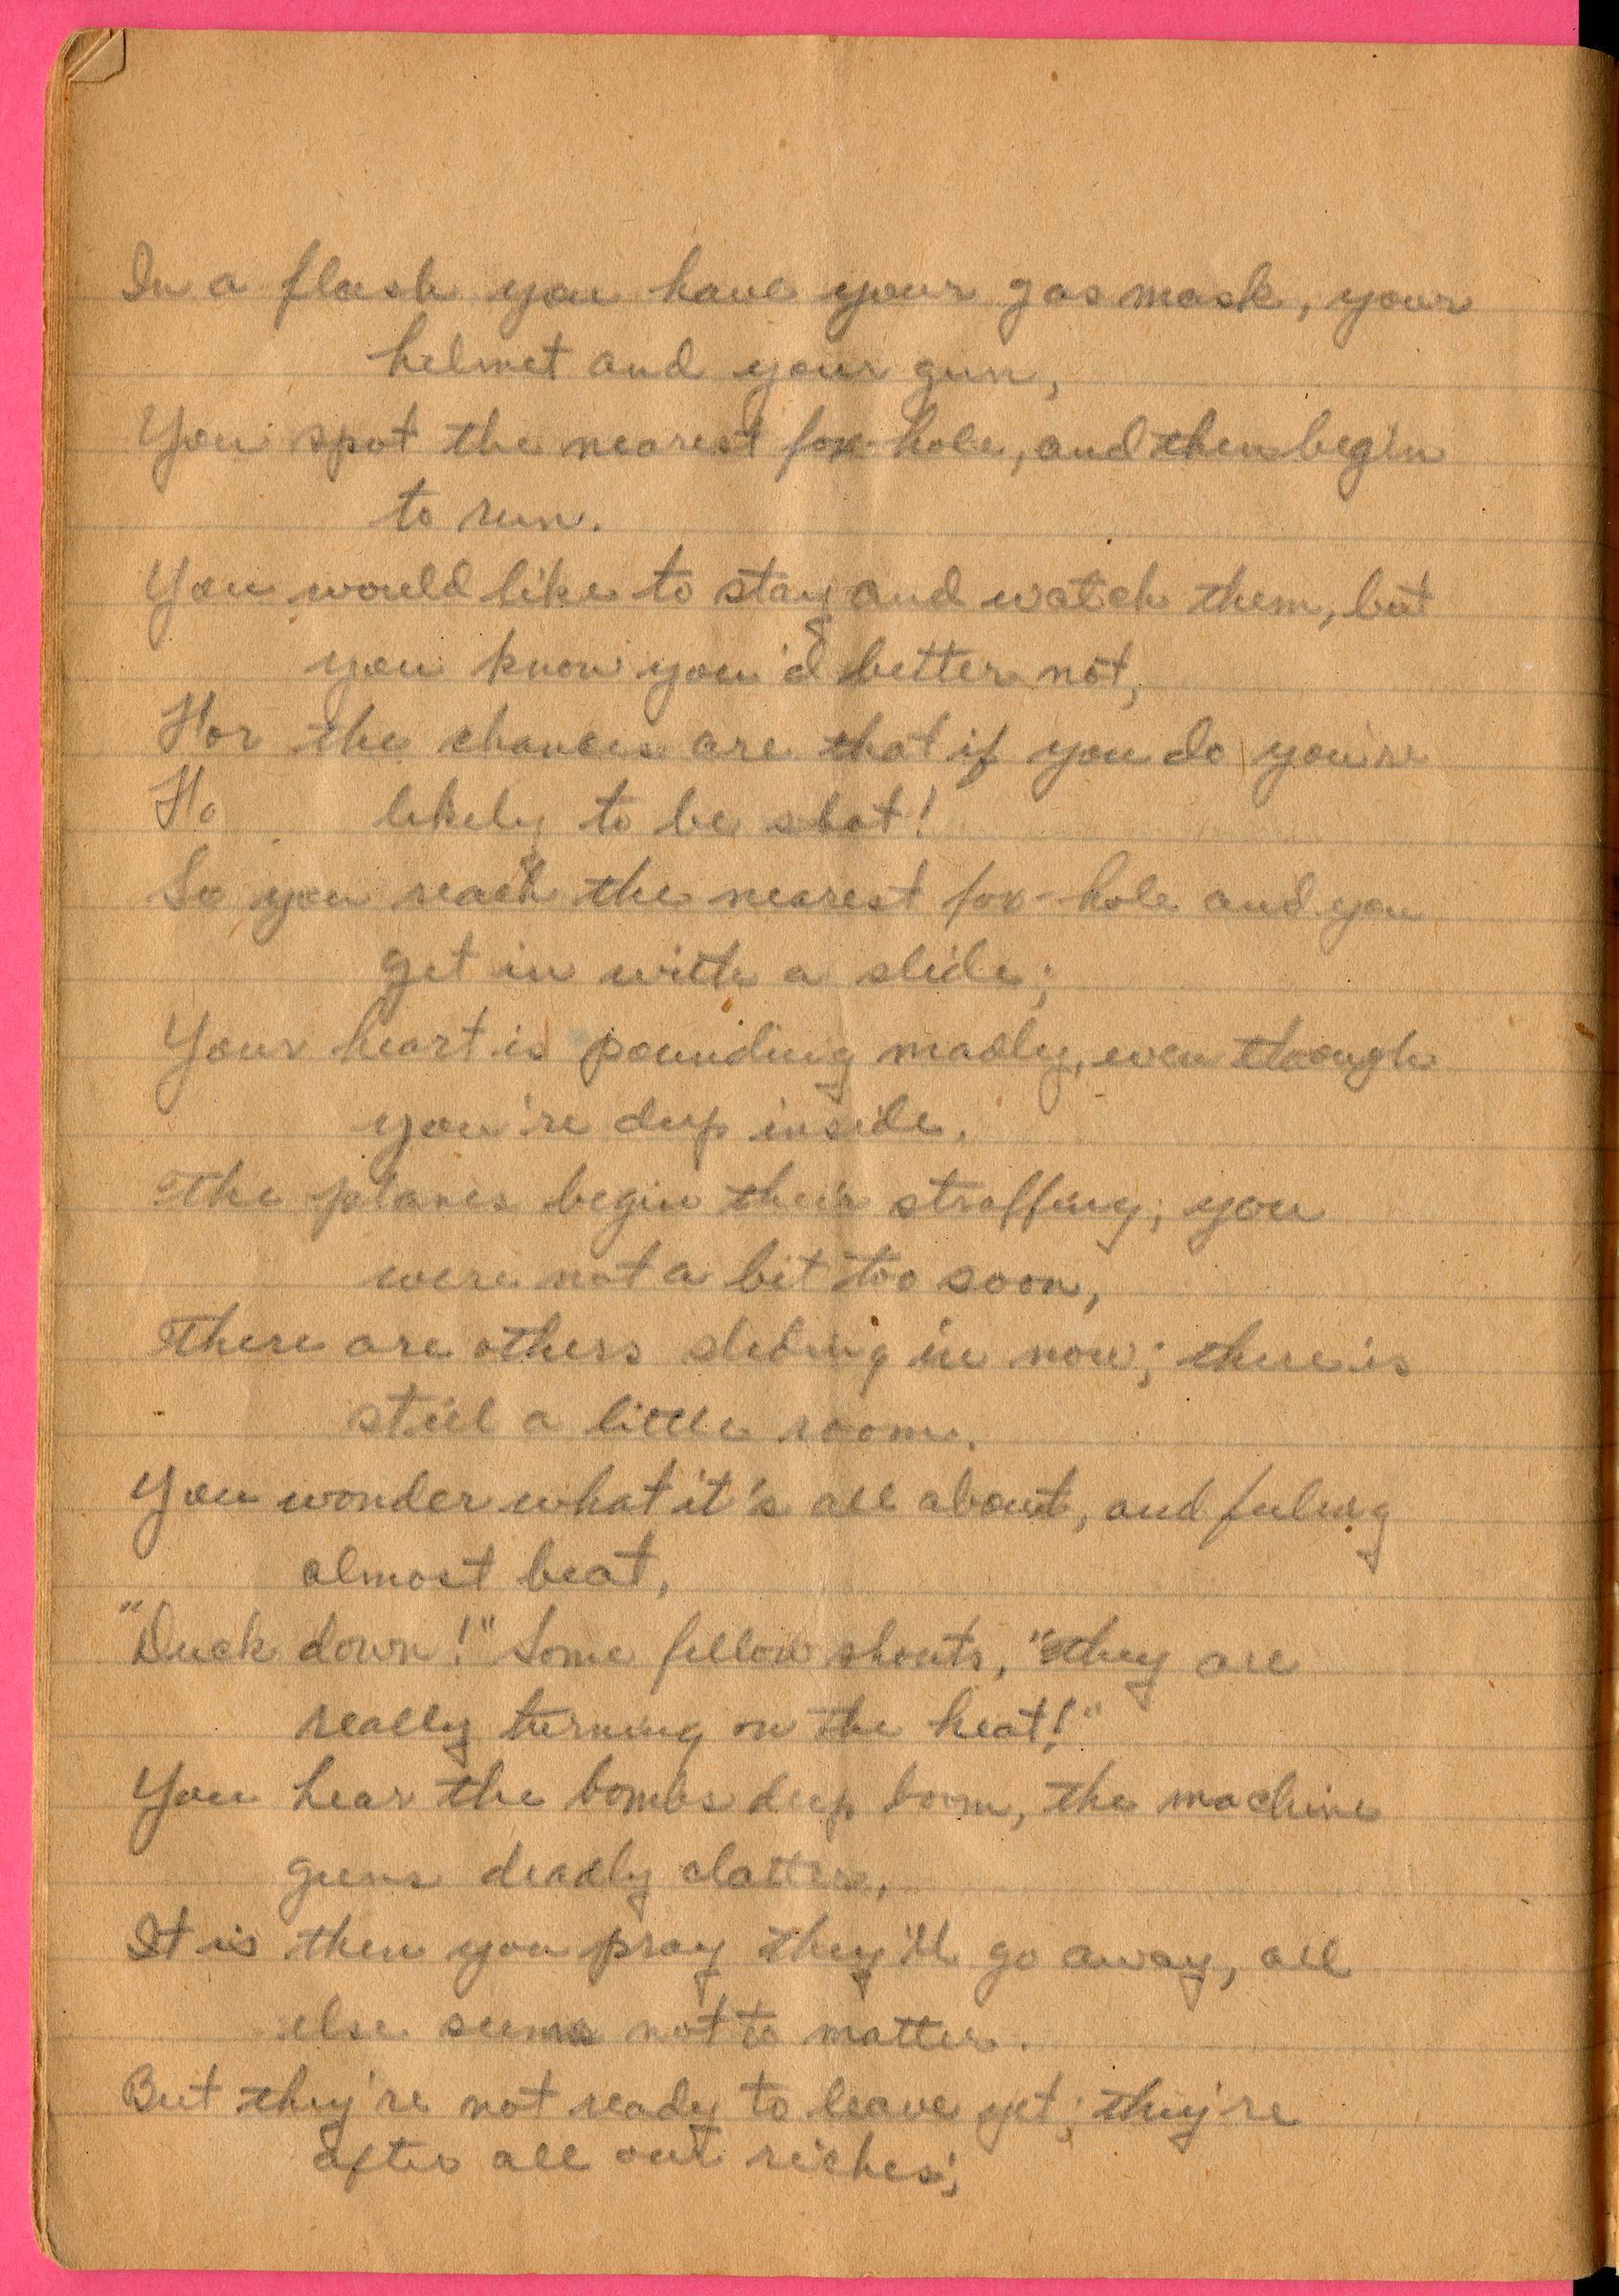 In a flash you have your gas mask, your
helmet and your gun,
You spot the nearest fox-hole, and then begin
to run.
You would like to stay and watch them, but
you know you'd better not,
For the chances are that if you do you're
Fo likely to be shot!
So you reach the nearest fox-hole and you
get in with a slide;
Your heart is pounding madly, even though
you're deep inside.
The planes begin their straffing; you
were not a bit too soon,
There are others sliding in now; there is
still a little room.
You wonder what it's all about, and feeling
almost beat,
"Duck down!" Some fellow shouts, "they are
really turning on the heat!"
You hear the bombs deep boom, the machine
guns deadly clatter,
It is then you pray they'll go away, all
else seems not to matter.
But they're not ready to leave yet; they're
after all our riches;